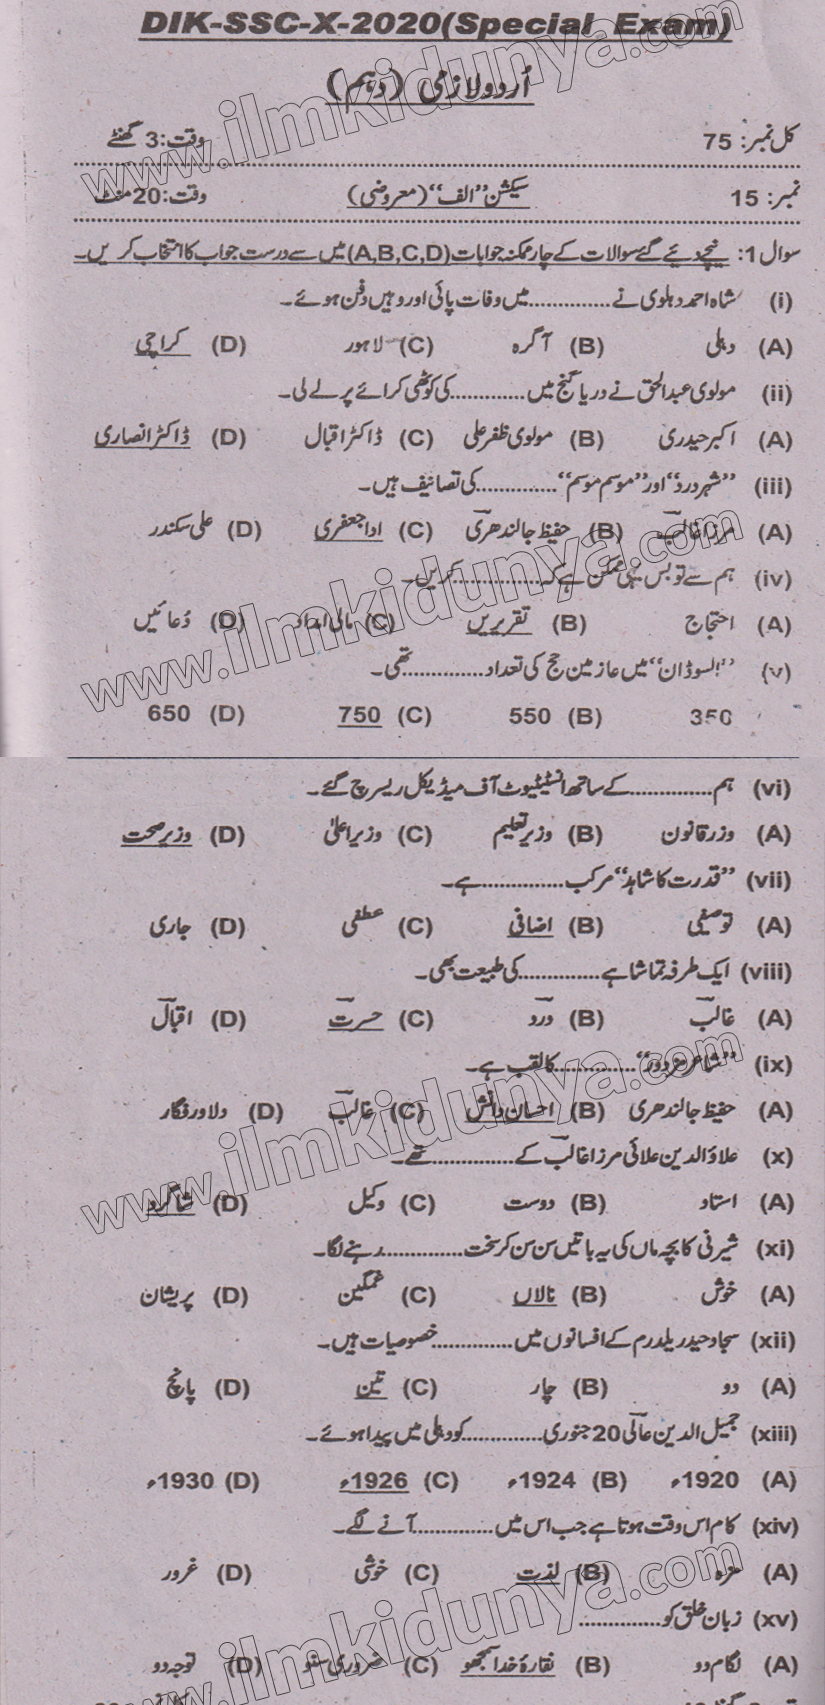 DIK-SSC-X-2020(Special Exam)
اُردو لازمی (دہم)
کل نمبر: 75 وقت: 3 گھنٹے
نمبر: 15 سیکشن "الف" (معروضی) وقت: 20 منٹ
سوال 1: نیچے دیئے گئے سوالات کے چار ممکنہ جوابات (A,B,C,D) میں سے درست جواب کا انتخاب کریں۔
(i) شاہ احمد دہلوی نے ............... میں وفات پائی اور وہیں دفن ہوئے۔
(A) دہلی (B) آگرہ (C) لاہور (D) کراچی
(ii) مولوی عبدالحق نے دریا گنج میں ............. کی کوٹھی کرائے پر لے لی۔
(A) اکبر حیدری (B) مولوی ظفر علی (C) ڈاکٹر اقبال (D) ڈاکٹر انصاری
(iii) "شہر درد" اور "موسم موسم" ............... کی تصانیف ہیں۔
(A) مرزا غالب (B) حفیظ جالندھری (C) ادا جعفری (D) علی سکندر
(iv) ہم سے تو بس یہی ممکن ہے کہ ............... کریں۔
(A) احتجاج (B) تقریریں (C) مالی امداد (D) دُعائیں
(v) "السوڈان" میں عازمین حج کی تعداد ............... تھی۔
350 (B) 550 (C) 750 (D) 650
(vi) ہم ............... کے ساتھ انسٹیٹیوٹ آف میڈیکل ریسرچ گئے۔
(A) وزر قانون (B) وزیر تعلیم (C) وزیر اعلیٰ (D) وزیر صحت
(vii) "قدرت کا شاہد" مرکب ............... ہے۔
(A) توصیفی (B) اضافی (C) عطفی (D) جاری
(viii) ایک طرفہ تماشا ہے ............... کی طبیعت بھی۔
(A) غالب (B) درد (C) حسرت (D) اقبال
(ix) "شاعر مزدور" ............... کا لقب ہے۔
(A) حفیظ جالندھری (B) احسان دانش (C) غالب (D) دلاور فگار
(x) علاؤ الدین علائی مرزا غالب کے ............... تھے۔
(A) استاد (B) دوست (C) وکیل (D) شاگرد
(xi) شیرنی کا بچہ ماں کی یہ باتیں سن سن کر سخت ............... رہنے لگا۔
(A) خوش (B) نالاں (C) غمگین (D) پریشان
(xii) سجاد حیدر یلدرم کے افسانوں میں ............... خصوصیات ہیں۔
(A) دو (B) چار (C) تین (D) پانچ
(xiii) جمیل الدین عالی 20 جنوری ............... کو دہلی میں پیدا ہوئے۔
(A) 1920ء (B) 1924ء (C) 1926ء (D) 1930ء
(xiv) کام اس وقت ہوتا ہے جب اس میں ............... آنے لگے۔
(A) مزہ (B) لذت (C) خوشی (D) غرور
(xv) زبان خلق کو ...............
(A) لگام دو (B) نقارۂ خدا سمجھو (C) ضروری سنو (D) توجہ دو
www.ilmkidunya.com
www.ilmkidunya.com
www.ilmkidunya.com
www.ilmkidunya.com